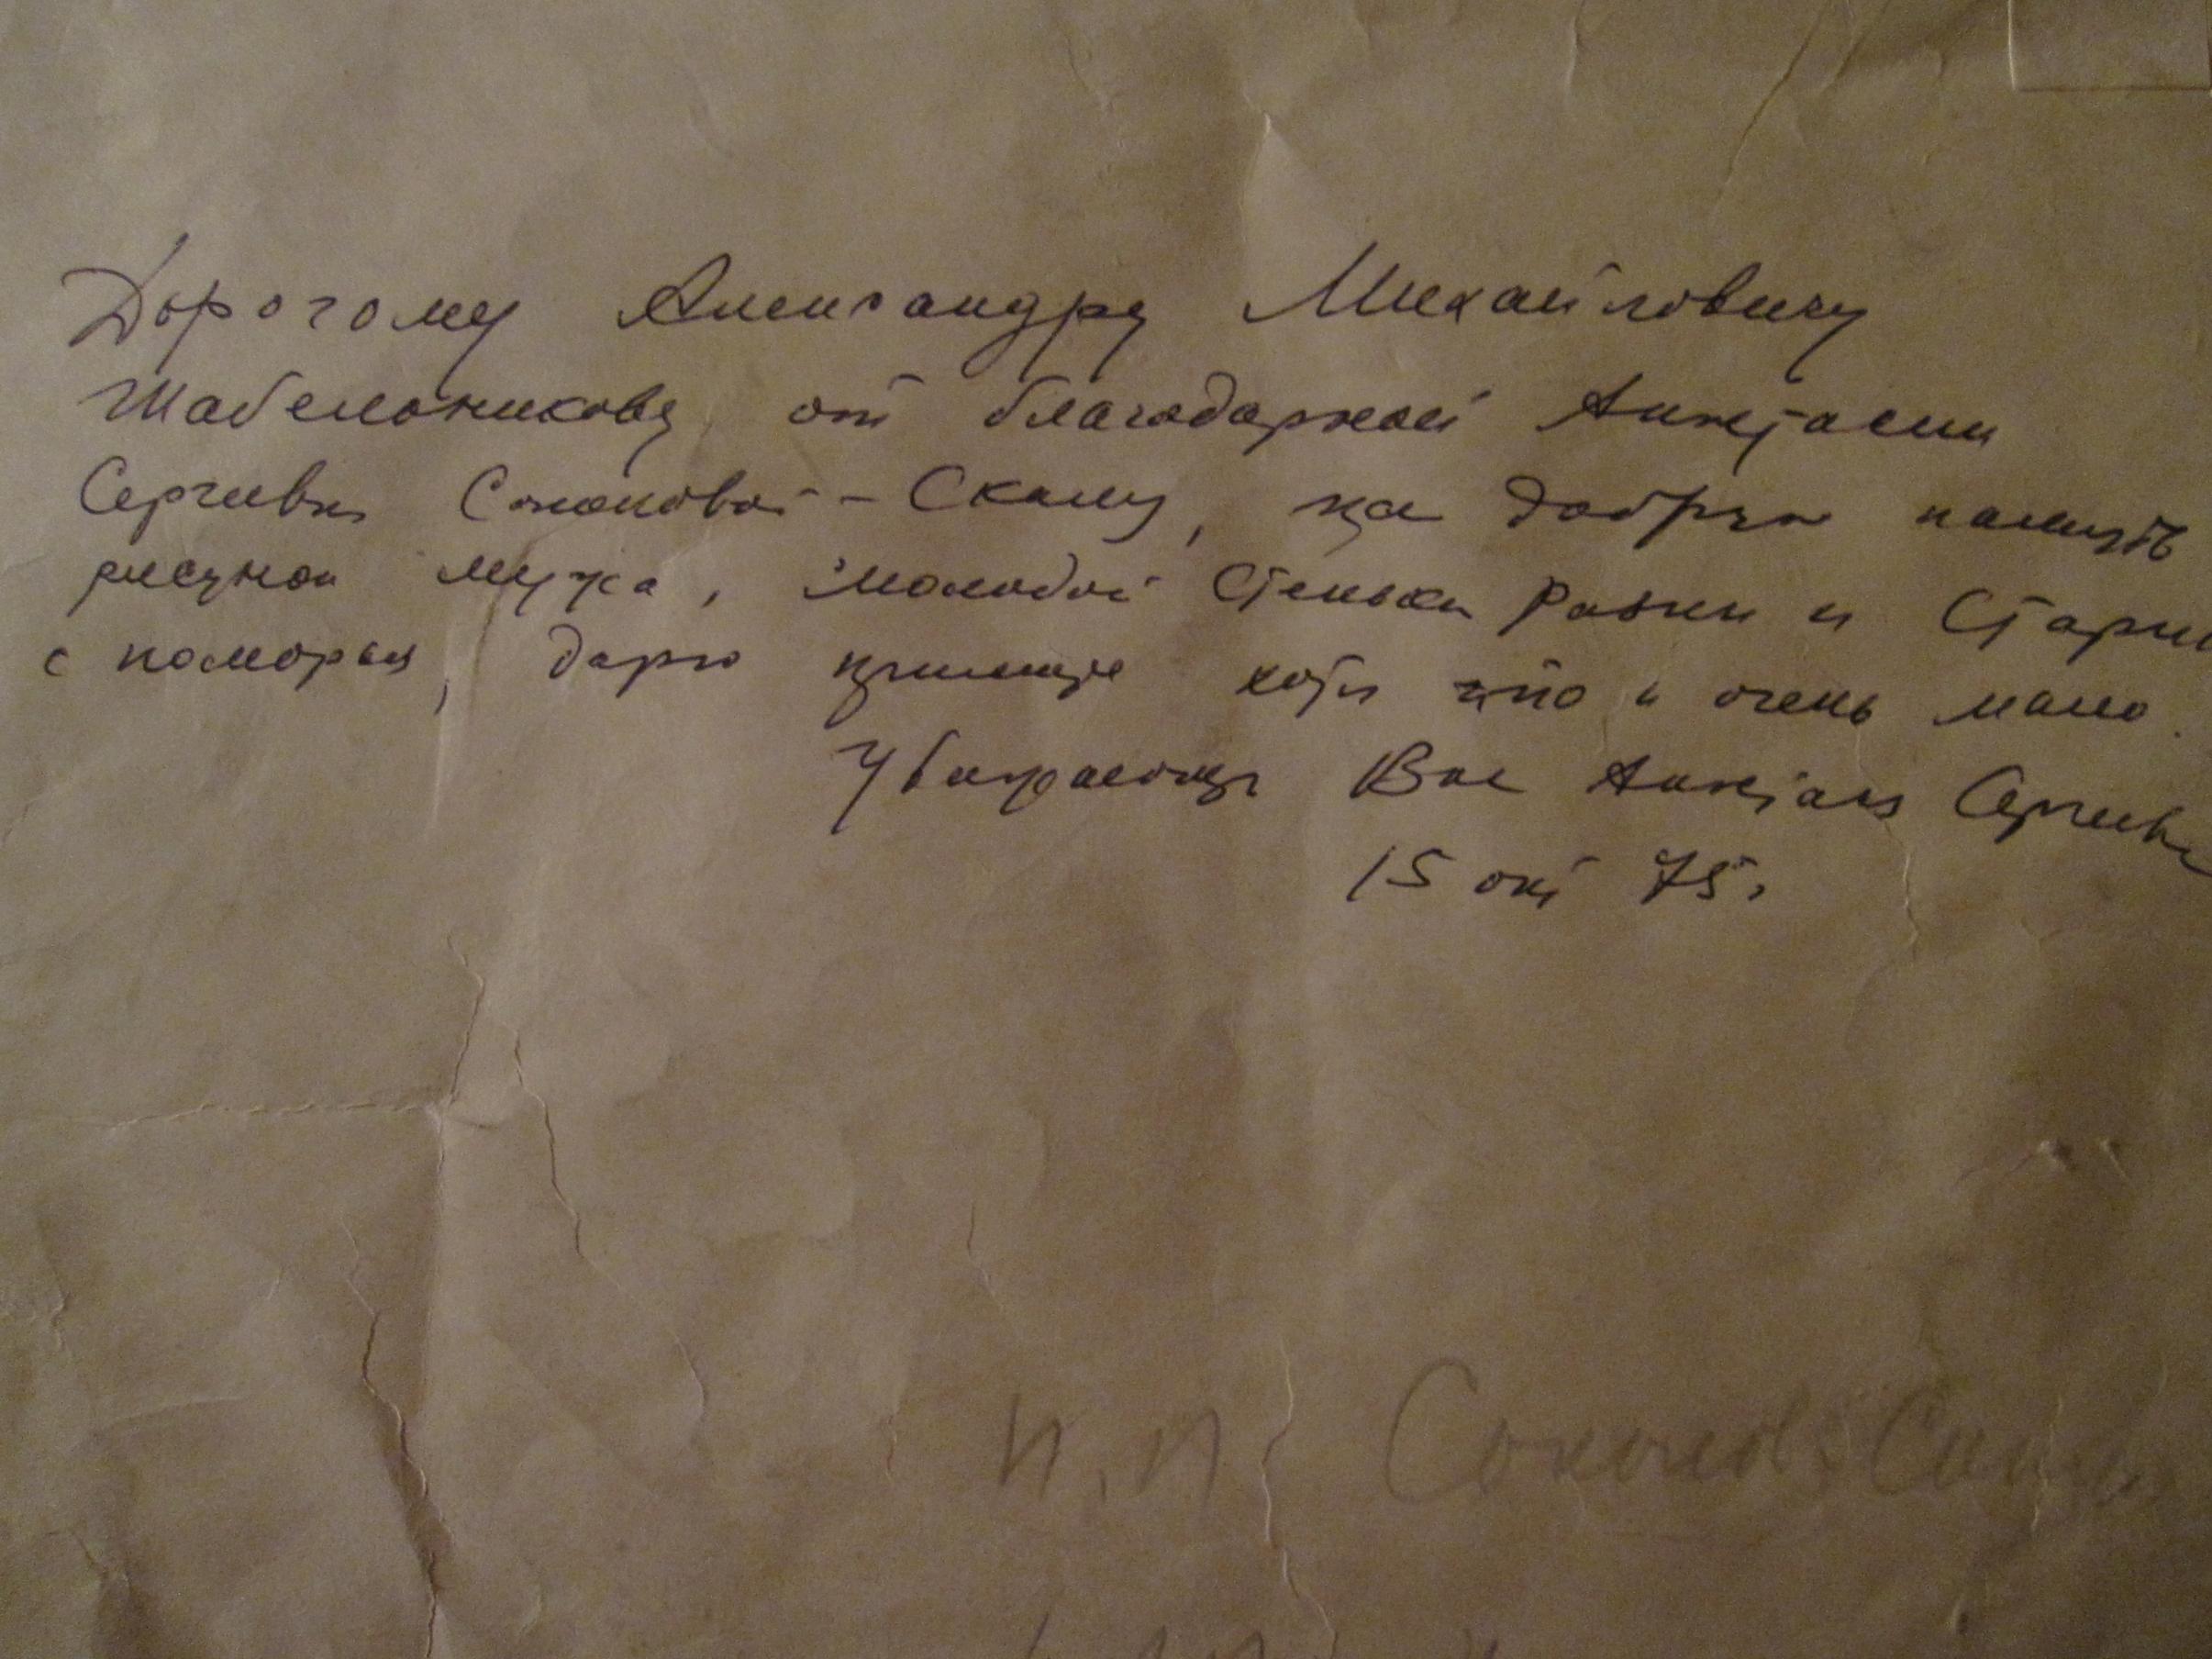 Дорогому Александру Михайловичу
Шабельникову, от благодарной Анастасии
Сергеевны Соколовой-Скаля, на добрую память
рисунок мужа, молодой Стеньки Разин и Стари
с поморья, дарю хотя это и очень мало.
Уважающая Вас Сергеевна
15 окт 75г
П.П. Соколов-Скаля